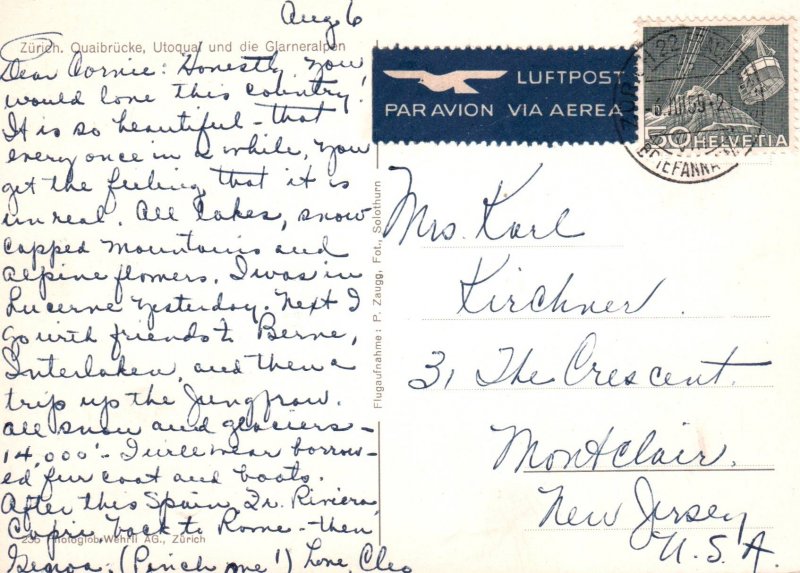 Aug 6
Zürich. Quaibrücke, Utoquai und die Glarneralpen
Dear Cornie: Honestly you
would love this country!
It is so beautiful - that
every once in a while, you
get the feeling that it is
unreal. All lakes, snow
capped mountains and
alpine flowers. I was in
Lucerne yesterday. Next I
go with friends to Berne,
Interlaken, and then a
trip up the Jungfrow.
all snow and glaciers -
14,000' - I will wear borrow-
ed fur coat and boots.
After this Spain, Fr. Riviera,
Capri, back to Rome - then
Genoa. (Pinch me!) Love, Cleo
235 Photoglob-Wehrli AG., Zürich
Flugaufnahme: P. Zaugg, Fot., Solothurn
LUFTPOST
PAR AVION VIA AEREA
50 HELVETIA
BRIEFANNA
Mrs. Karl
Kirchner.
31 The Crescent.
Montclair.
New Jersey
U.S.A.